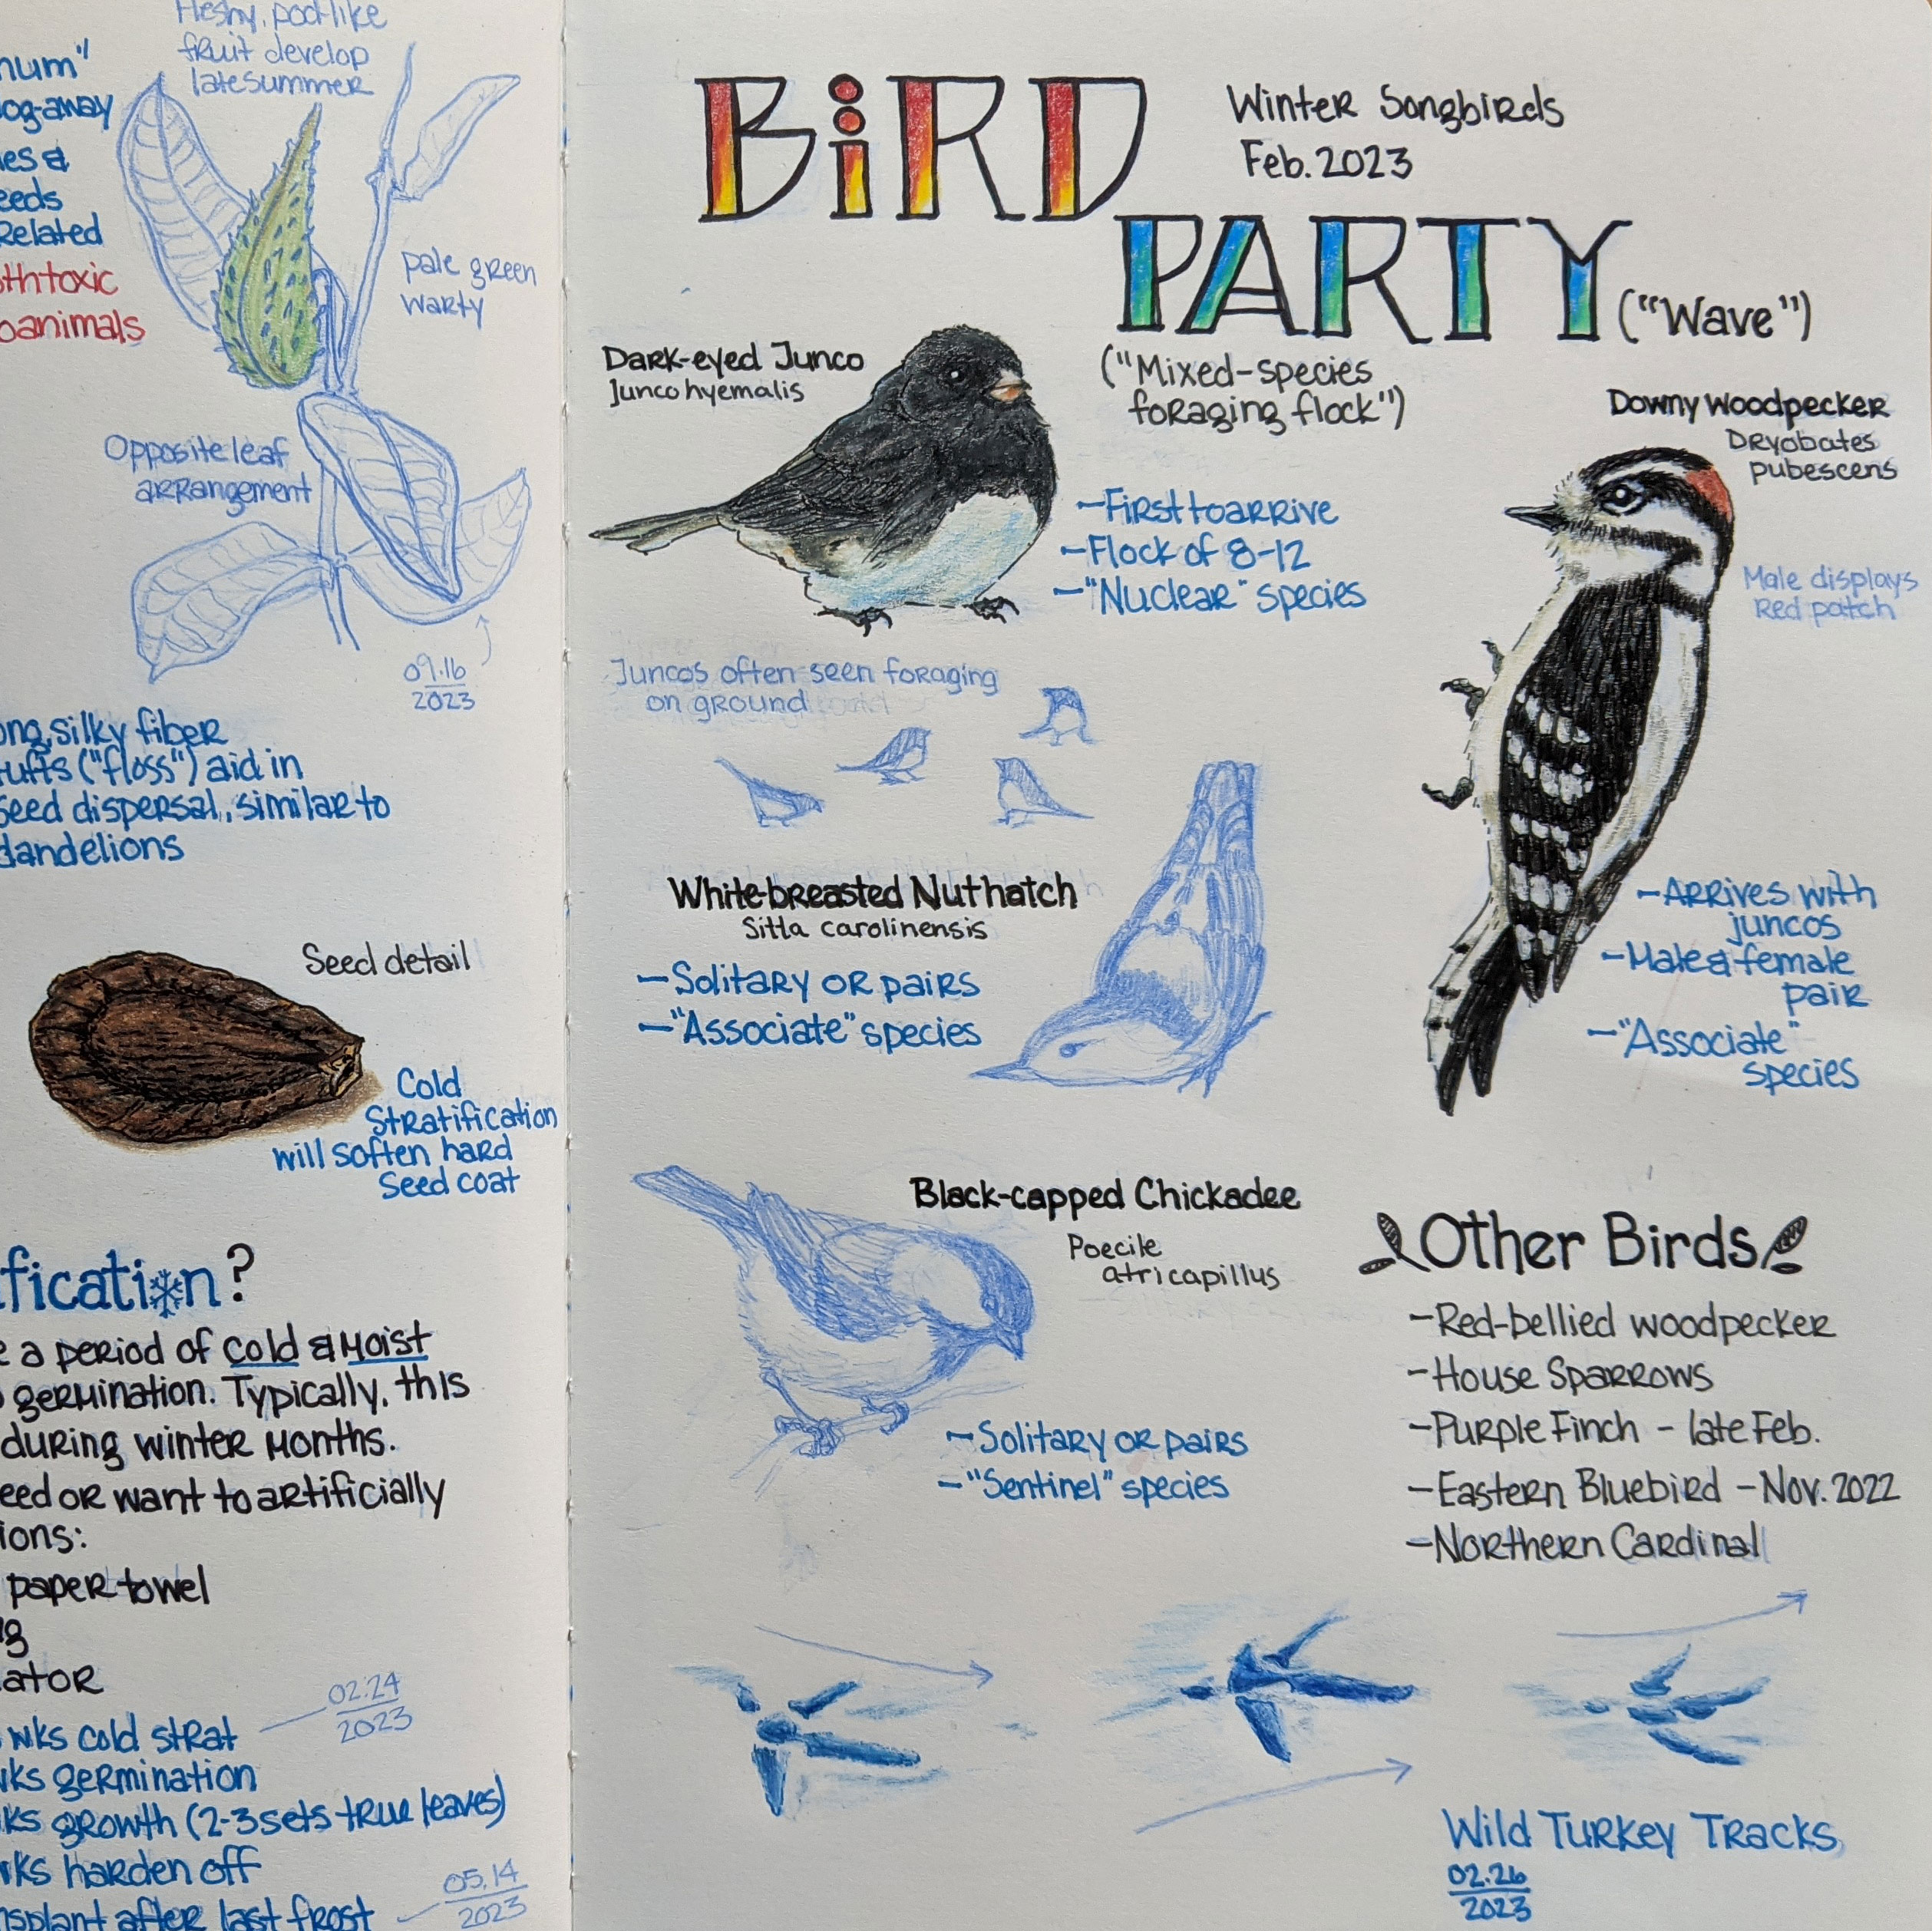 Fleshy, pod-like
fruit develop
late summer
num"
og-away
es &
eeds
Related
oth toxic
o animals
pale green
warty
Opposite leaf
arrangement
09.16
2023
ong, silky fiber
tufts ("floss") aid in
seed dispersal, similar to
dandelions
Seed detail
Cold
Stratification
will soften hard
Seed coat
ification?
e a period of cold & moist
germination. Typically, this
during winter months.
eed or want to artificially
ions:
paper towel
g
ator
02.24
2023
wks cold strat
wks germination
ks growth (2-3 sets true leaves)
wks harden off
05.14
2023
nsplant after last frost
BiRD
Winter Songbirds
Feb. 2023
PARTY ("Wave")
("Mixed-species
foraging flock")
Dark-eyed Junco
Junco hyemalis
-First to arrive
-Flock of 8-12
-"Nuclear" species
Juncos often seen foraging
on ground
Downy Woodpecker
Dryobates
pubescens
Male displays
Red patch
-Arrives with
juncos
-Male & female
pair
-"Associate"
species
White-breasted Nuthatch
Sitta carolinensis
-Solitary or pairs
-"Associate" species
Black-capped Chickadee
Poecile
atricapillus
-Solitary or pairs
-"Sentinel" species
Other Birds
-Red-bellied woodpecker
-House Sparrows
-Purple Finch - late Feb.
-Eastern Bluebird - Nov. 2022
-Northern Cardinal
Wild Turkey Tracks
02.26
2023